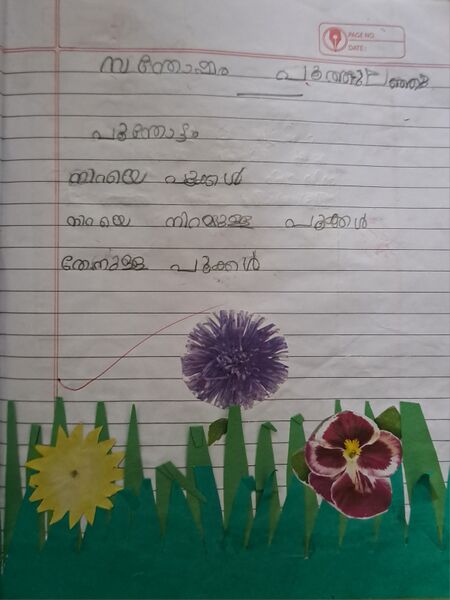 PAGE NO.
DATE:
സന്തോഷം പൂത്തുലഞ്ഞു
പൂന്തോട്ടം
നിറയെ പൂക്കൾ
നിറയെ നിറമുള്ള പൂക്കൾ
തേനുള്ള പൂക്കൾ